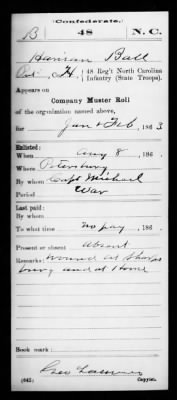 (Confederate.)
B 48 N. C.
Harmon Ball
Co. H, 48 Reg't North Carolina
Infantry (State Troops).
Appears on
Company Muster Roll
of the organization named above,
for Jan & Feb, 1863
Enlisted:
When Aug 8, 186 .
Where Petersburg
By whom Capt Michael
Period War
Last paid:
By whom
To what time no pay, 186 .
Present or absent absent
Remarks: wound at Sharps
burg and at Home
Book mark:
(642) Copyist.